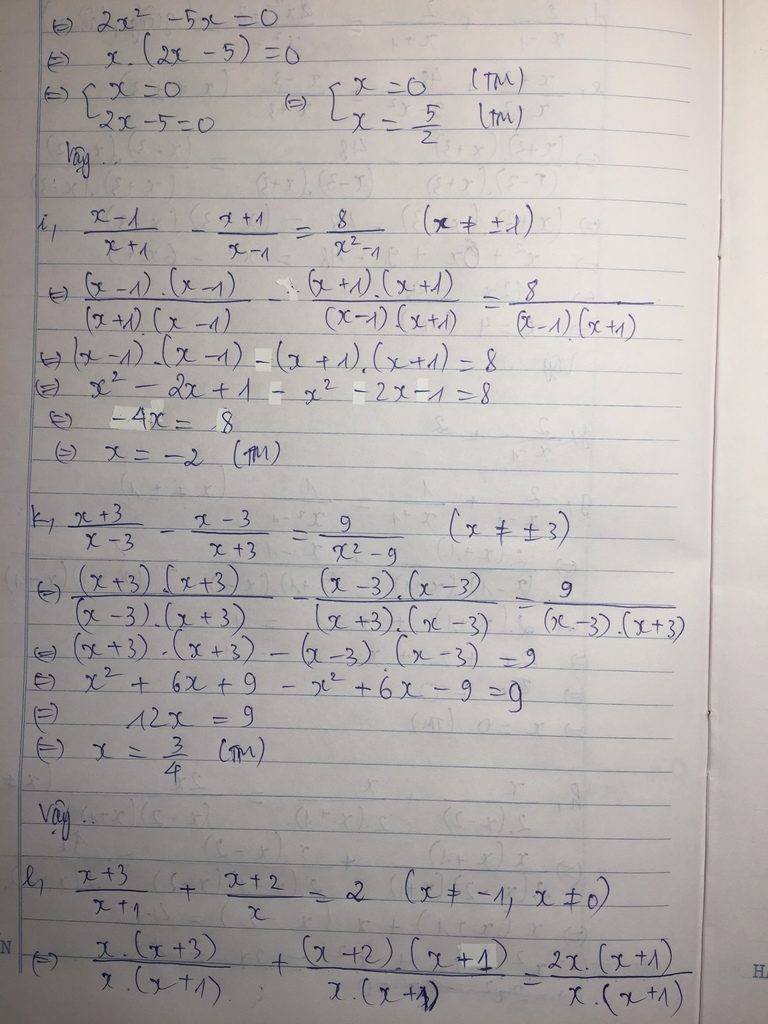 ⇔ 2x² - 5x = 0
⇔ x.(2x - 5) = 0
⇔ { x = 0 ⇔ { x = 0 (TM)
2x - 5 = 0 x = 5/2 (TM)
Vậy..
i, (x-1)/(x+1) - (x+1)/(x-1) = 8/(x²-1) (x ≠ ±1)
⇔ (x-1).(x-1)/(x+1).(x-1) - (x+1).(x+1)/(x-1).(x+1) = 8/(x-1).(x+1)
⇔ (x-1).(x-1) - (x+1).(x+1) = 8
⇔ x² - 2x + 1 - x² - 2x - 1 = 8
⇔ -4x = 8
⇔ x = -2 (TM)
k, (x+3)/(x-3) - (x-3)/(x+3) = 9/(x²-9) (x ≠ ±3)
⇔ (x+3).(x+3)/(x-3).(x+3) - (x-3).(x-3)/(x+3).(x-3) = 9/(x-3).(x+3)
⇔ (x+3).(x+3) - (x-3).(x-3) = 9
⇔ x² + 6x + 9 - x² + 6x - 9 = 9
⇔ 12x = 9
⇔ x = 3/4 (TM)
Vậy..
l, (x+3)/(x+1) + (x+2)/x = 2 (x ≠ -1, x ≠ 0)
⇔ x.(x+3)/x.(x+1) + (x+2).(x+1)/x.(x+1) = 2x.(x+1)/x.(x+1)